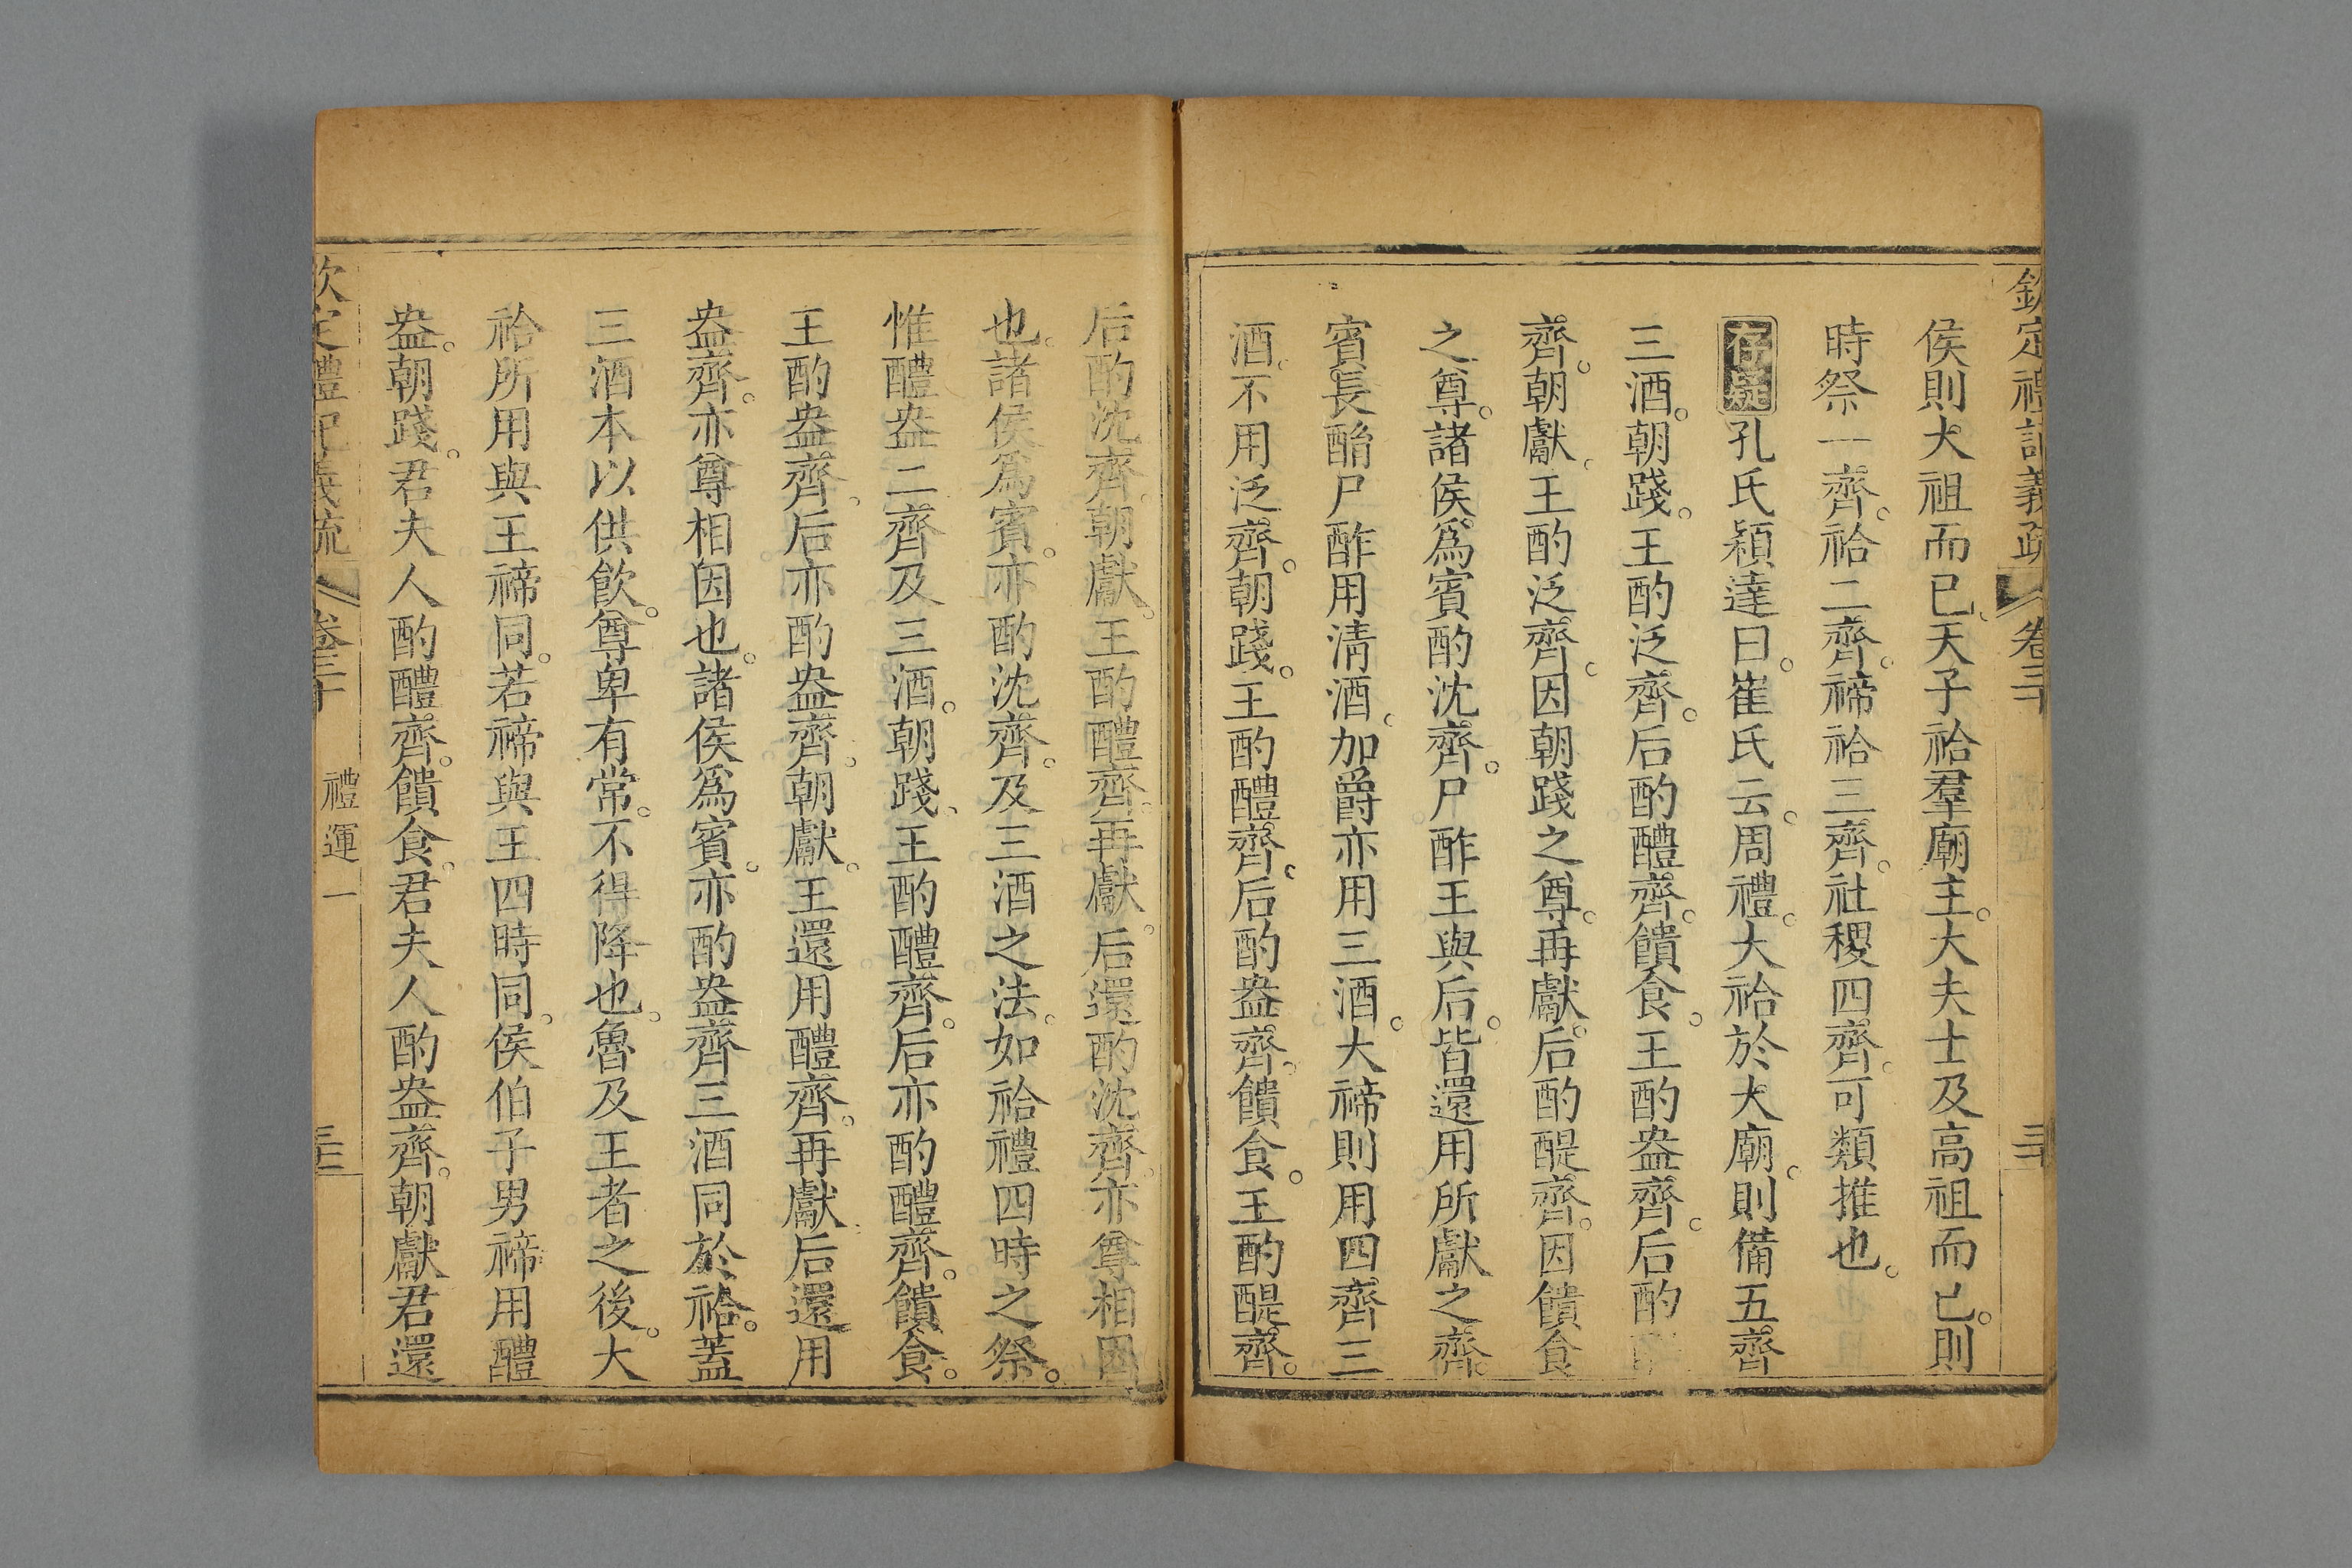 欽定禮記義疏 卷三十
侯則大祖而已天子祫羣廟主。大夫士及高祖而已。則
時祭一齊。祫二齊。禘祫三齊。社稷四齊。可類推也。
存疑孔氏穎達曰。崔氏云。周禮。大祫於大廟。則備五齊
三酒。朝踐。王酌泛齊。后酌醴齊。饋食。王酌盎齊。后酌
齊。朝獻。王酌泛齊。因朝踐之尊。再獻。后酌醍齊。因饋食
之尊。諸侯爲賓酌沈齊。尸酢王與后。皆還用所獻之齊。
賓長酳尸酢用淸酒。加爵亦用三酒。大禘則用四齊三
酒。不用泛齊。朝踐。王酌醴齊。后酌盎齊。饋食。王酌醍齊。
后酌沈齊。朝獻。王酌醴齊。再獻。后還酌沈齊。亦尊相因
也。諸侯爲賓。亦酌沈齊。及三酒之法。如祫禮四時之祭。
惟醴盎二齊及三酒。朝踐。王酌醴齊。后亦酌醴齊。饋食。
王酌盎齊。后亦酌盎齊。朝獻。王還用醴齊。再獻。后還用
盎齊。亦尊相因也。諸侯爲賓。亦酌盎齊三酒同於祫。蓋
三酒本以供飮。尊卑有常。不得降也。魯及王者之後。大
祫所用與王禘同。若禘與王四時同。侯伯子男禘用醴
盎。朝踐。君夫人酌醴齊。饋食。君夫人酌盎齊。朝獻君還
欽定禮記義疏 卷三十 禮運一